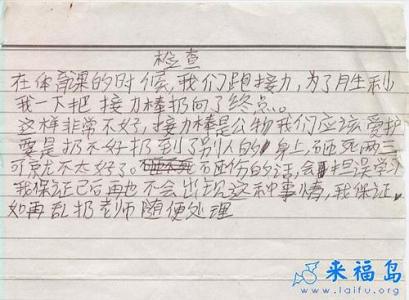 检查
在体育课的时候,我们跑接力,为了月生利
我一下把接力棒扔向了终点。
这样非常不好,接力棒是公物我们应该爱护
要是扔不好扔到了别人的身上,砸死两三
可就不太好了。砸伤的话,会担误学习
我保证已后再也不会出现这种事情,我保证
如再乱扔老师随便处理
来福岛
www.laifu.org